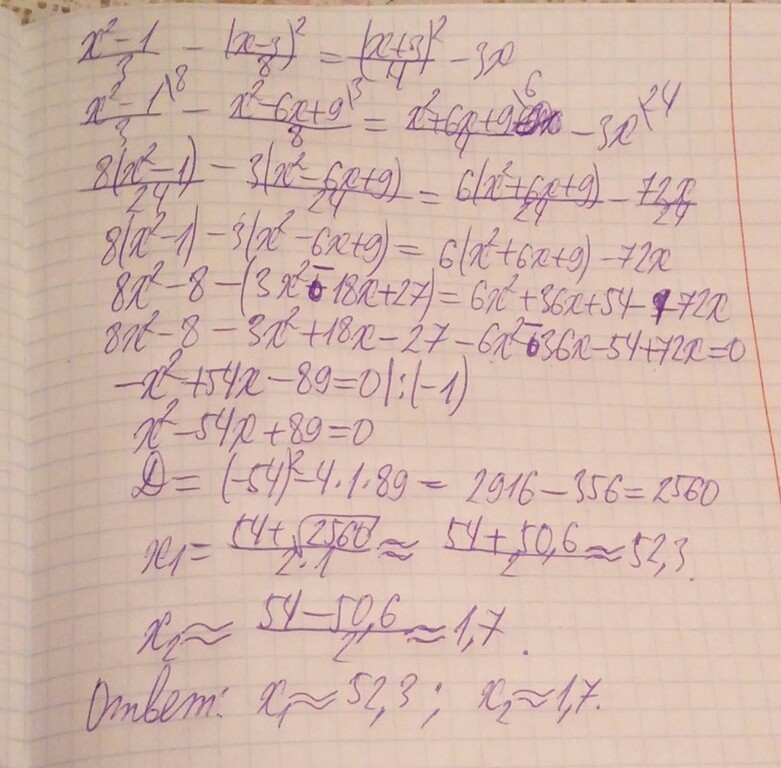 (x²-1)/3 - (x-3)²/8 = (x+3)²/4 - 3x
(x²-1)/3 \8 - (x²-6x+9)/8 \3 = (x²+6x+9)/4 \6 - 3x \24
8(x²-1)/24 - 3(x²-6x+9)/24 = 6(x²+6x+9)/24 - 72x/24
8(x²-1) - 3(x²-6x+9) = 6(x²+6x+9) - 72x
8x²-8-(3x²-18x+27) = 6x²+36x+54-72x
8x²-8-3x²+18x-27-6x²-36x-54+72x=0
-x²+54x-89=0 |:(-1)
x²-54x+89=0
D = (-54)²-4·1·89 = 2916-356=2560
x₁ = (54+√2560)/(2·1) ≈ (54+50,6)/2 ≈ 52,3.
x₂ ≈ (54-50,6)/2 ≈ 1,7.
Ответ: x₁ ≈ 52,3; x₂ ≈ 1,7.